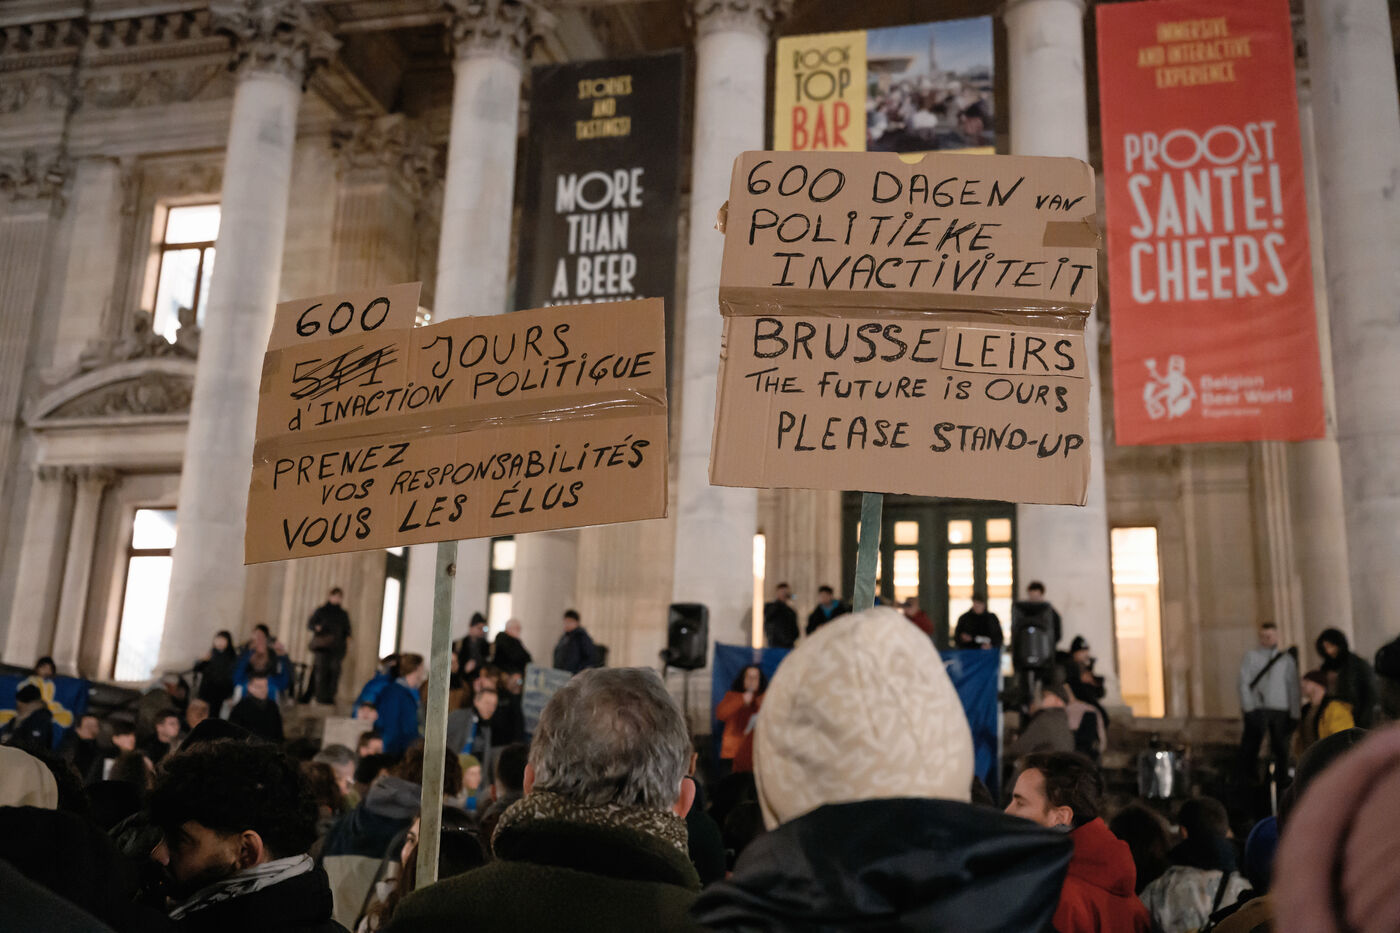 STORIES
AND
TASTINGS!
MORE
THAN
A BEER
ROOF
TOP
BAR
IMMERSIVE
AND INTERACTIVE
EXPERIENCE
PROOST
SANTÉ!
CHEERS
Belgian
Beer World
Experience
600
JOURS
d'INACTION POLITIQUE
PRENEZ
VOS RESPONSABILITÉS
VOUS LES ÉLUS
600 DAGEN VAN
POLITIEKE
INACTIVITEIT
BRUSSELEIRS
THE FUTURE IS OURS
PLEASE STAND-UP